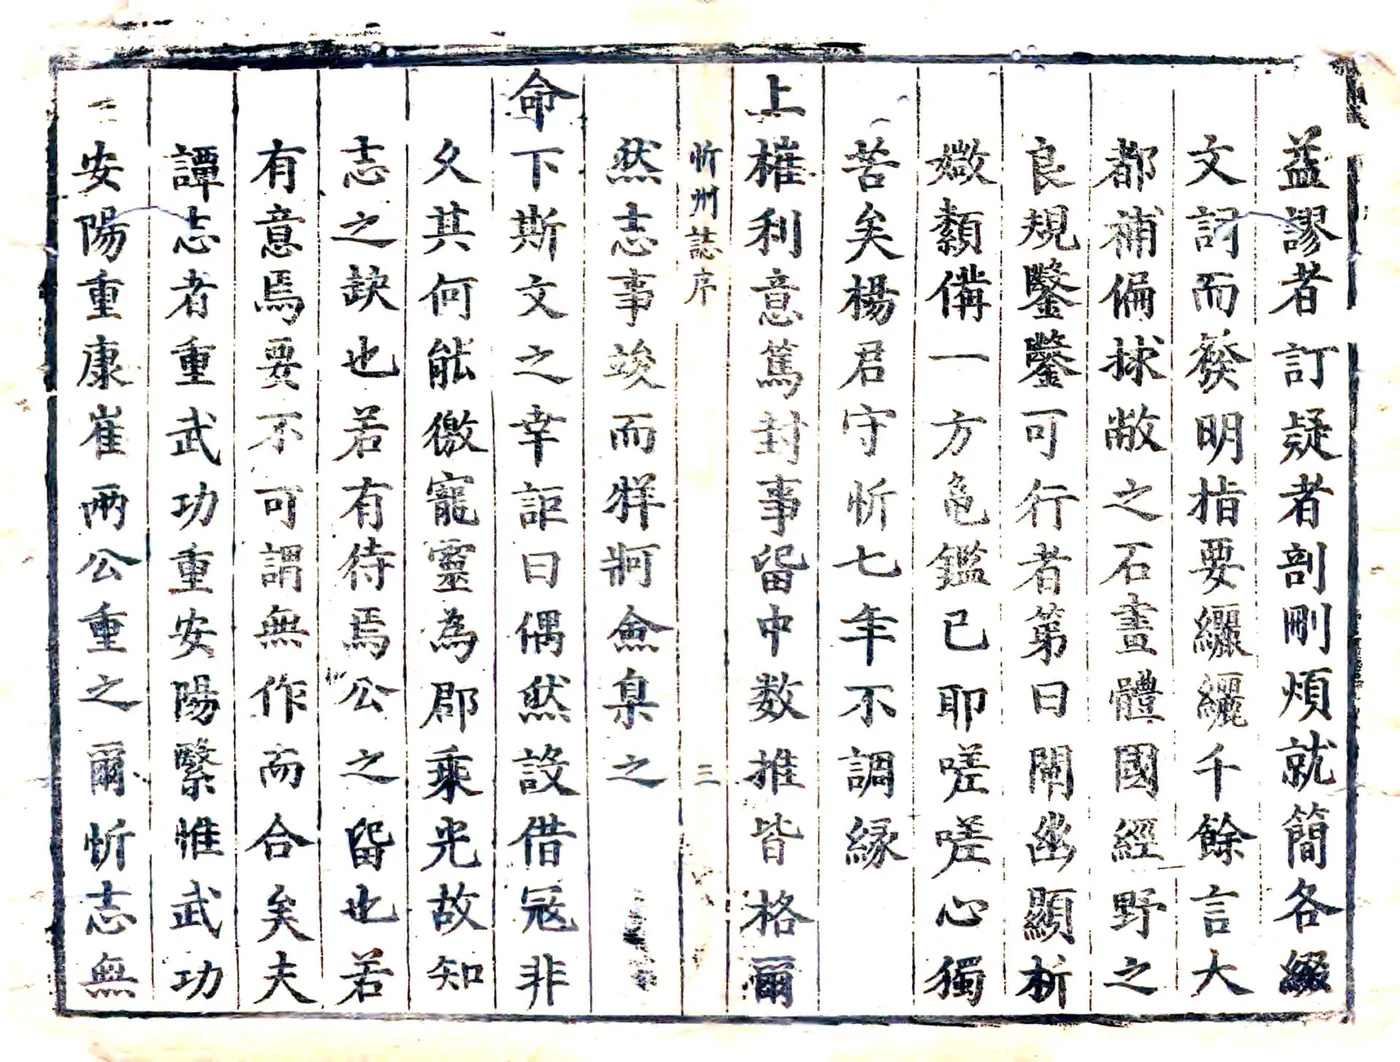 益謬者訂疑者剖刪煩就簡各綴
文詞而發明指要纚纚千餘言大
都補偏捄敝之石畫體國經野之
良規鑿鑿可行者第曰闡幽顯析
媺纇備一方龜鑑已耶嗟嗟心獨
苦矣楊君守忻七年不調緣
上榷利意篤封事留中数推皆格爾
忻州誌序
三
然志事竣而牂牁僉臬之
命下斯文之幸詎曰偶然設借冦非
久其何能徼寵靈為郡乘光故知
志之缺也若有待焉公之留也若
有意焉要不可謂無作而合矣夫
譚志者重武功重安陽繄惟武功
安陽重康崔兩公重之爾忻志無